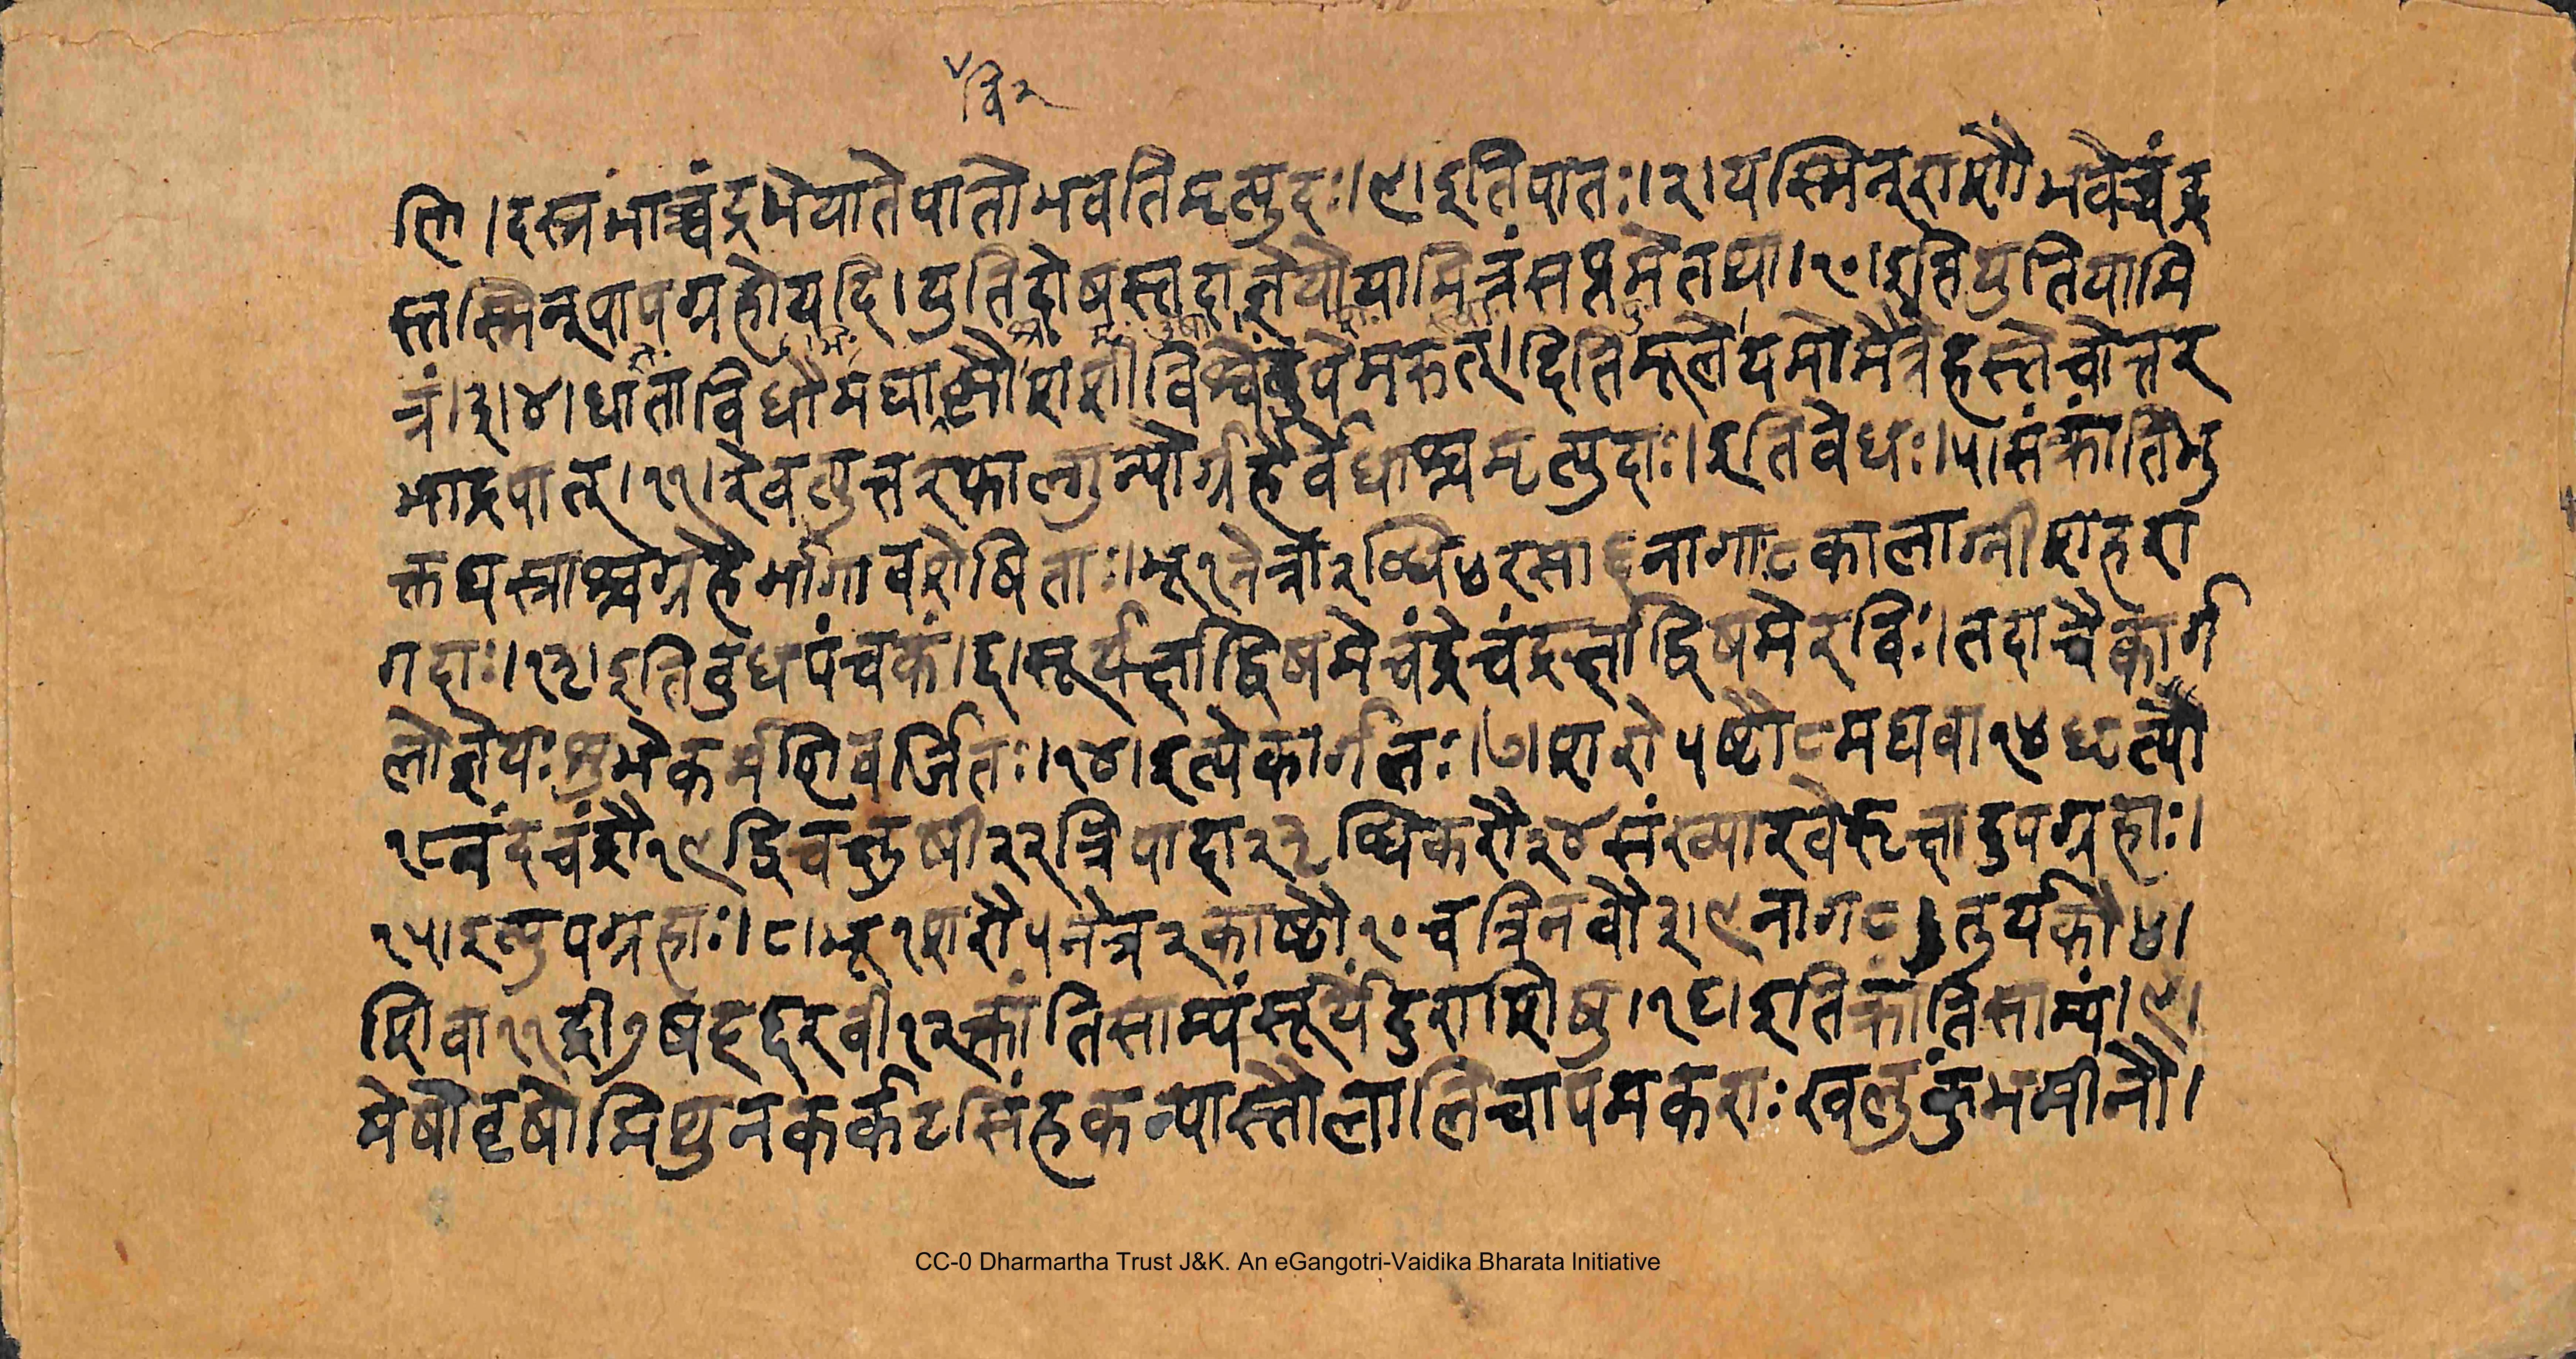 वि २
लि।दस्रभाच्चंद्रभेयातेपातोभवतिमृत्युदः।९।इतिपातः।२।यस्मिन्राशौभवेच्चंद्र
स्तस्मिन्पापग्रहोयदि।युतिदोषस्तदाज्ञेयोयामित्रंसप्तमेतथा।१०।इतियुतियामि
त्रं।३।४।धाताविधौमघा शशीविश्वं मरुत्।दितिमूलेयमोमैत्रेहस्तेचोत्तर
भाद्रपात्।११।रेवत्युत्तरफाल्गुन्योर्ग्रहैर्वेधाश्चमृत्युदाः।इतिवेधः।५।संक्रांतिभु
क्तघस्राश्चग्रहैर्भागावशेषिताः।भू१नेत्रा२ब्धि४रसा६नागाः८कालाग्नीशहरा
गदाः।१३।इतिबुधपंचकं।६।सूर्यर्क्षाद्विषमेचंद्रेचंद्रर्क्षाद्विषमेरविः।तदाचैकार्ग
लोज्ञेयःशुभेकर्मणिवर्जितः।१४।इत्येकार्गलः।७।शरो५ष्टौ८मघवा१४धृत्यौ
१८नंदचंद्रौ१९द्विचक्षुषी२२त्रिपाहा२३ब्धिकरौ२४संख्यारवेर्ऋक्षादुपग्रहाः।
१५।इत्युपग्रहाः।८।भू१शरौ५नेत्र२काष्ठौ१०चत्रिनवौ३।९नाग८।तुर्यकौ४।
शिवा११द्री७षट्६रवी१२क्रांतिसाम्यंसूर्येंदुराशिषु।१६।इतिक्रांतिसाम्यं।९।
मेषोवृषोमिथुनकर्कटसिंहकन्यास्तौलालिचापमकराःखलुकुंभमीनौ।
CC-0 Dharmartha Trust J&K. An eGangotri-Vaidika Bharata Initiative